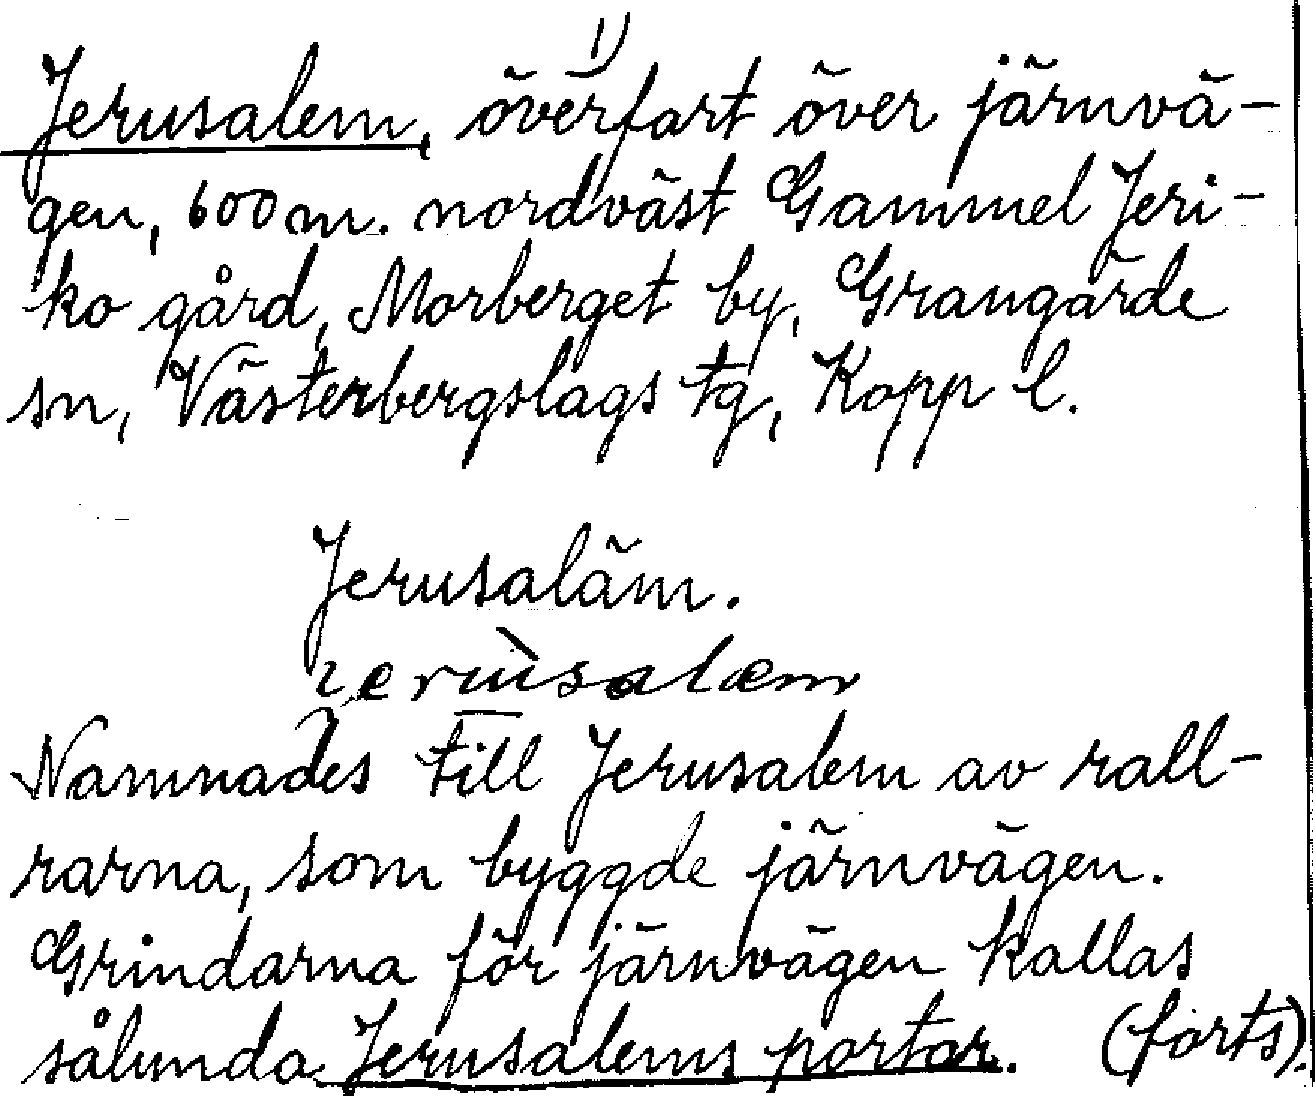 1)
Jerusalem, överfart över järnvä-
gen, 600 m. nordväst Gammel Jeri-
ko gård, Morberget by, Grangärde
sn, Västerbergslags tg, Kopp l.
Jerusaläm.
Namnades till Jerusalem av rall-
rarna, som byggde järnvägen.
Grindarna för järnvägen kallas
sålunda Jerusalems portar. (forts).